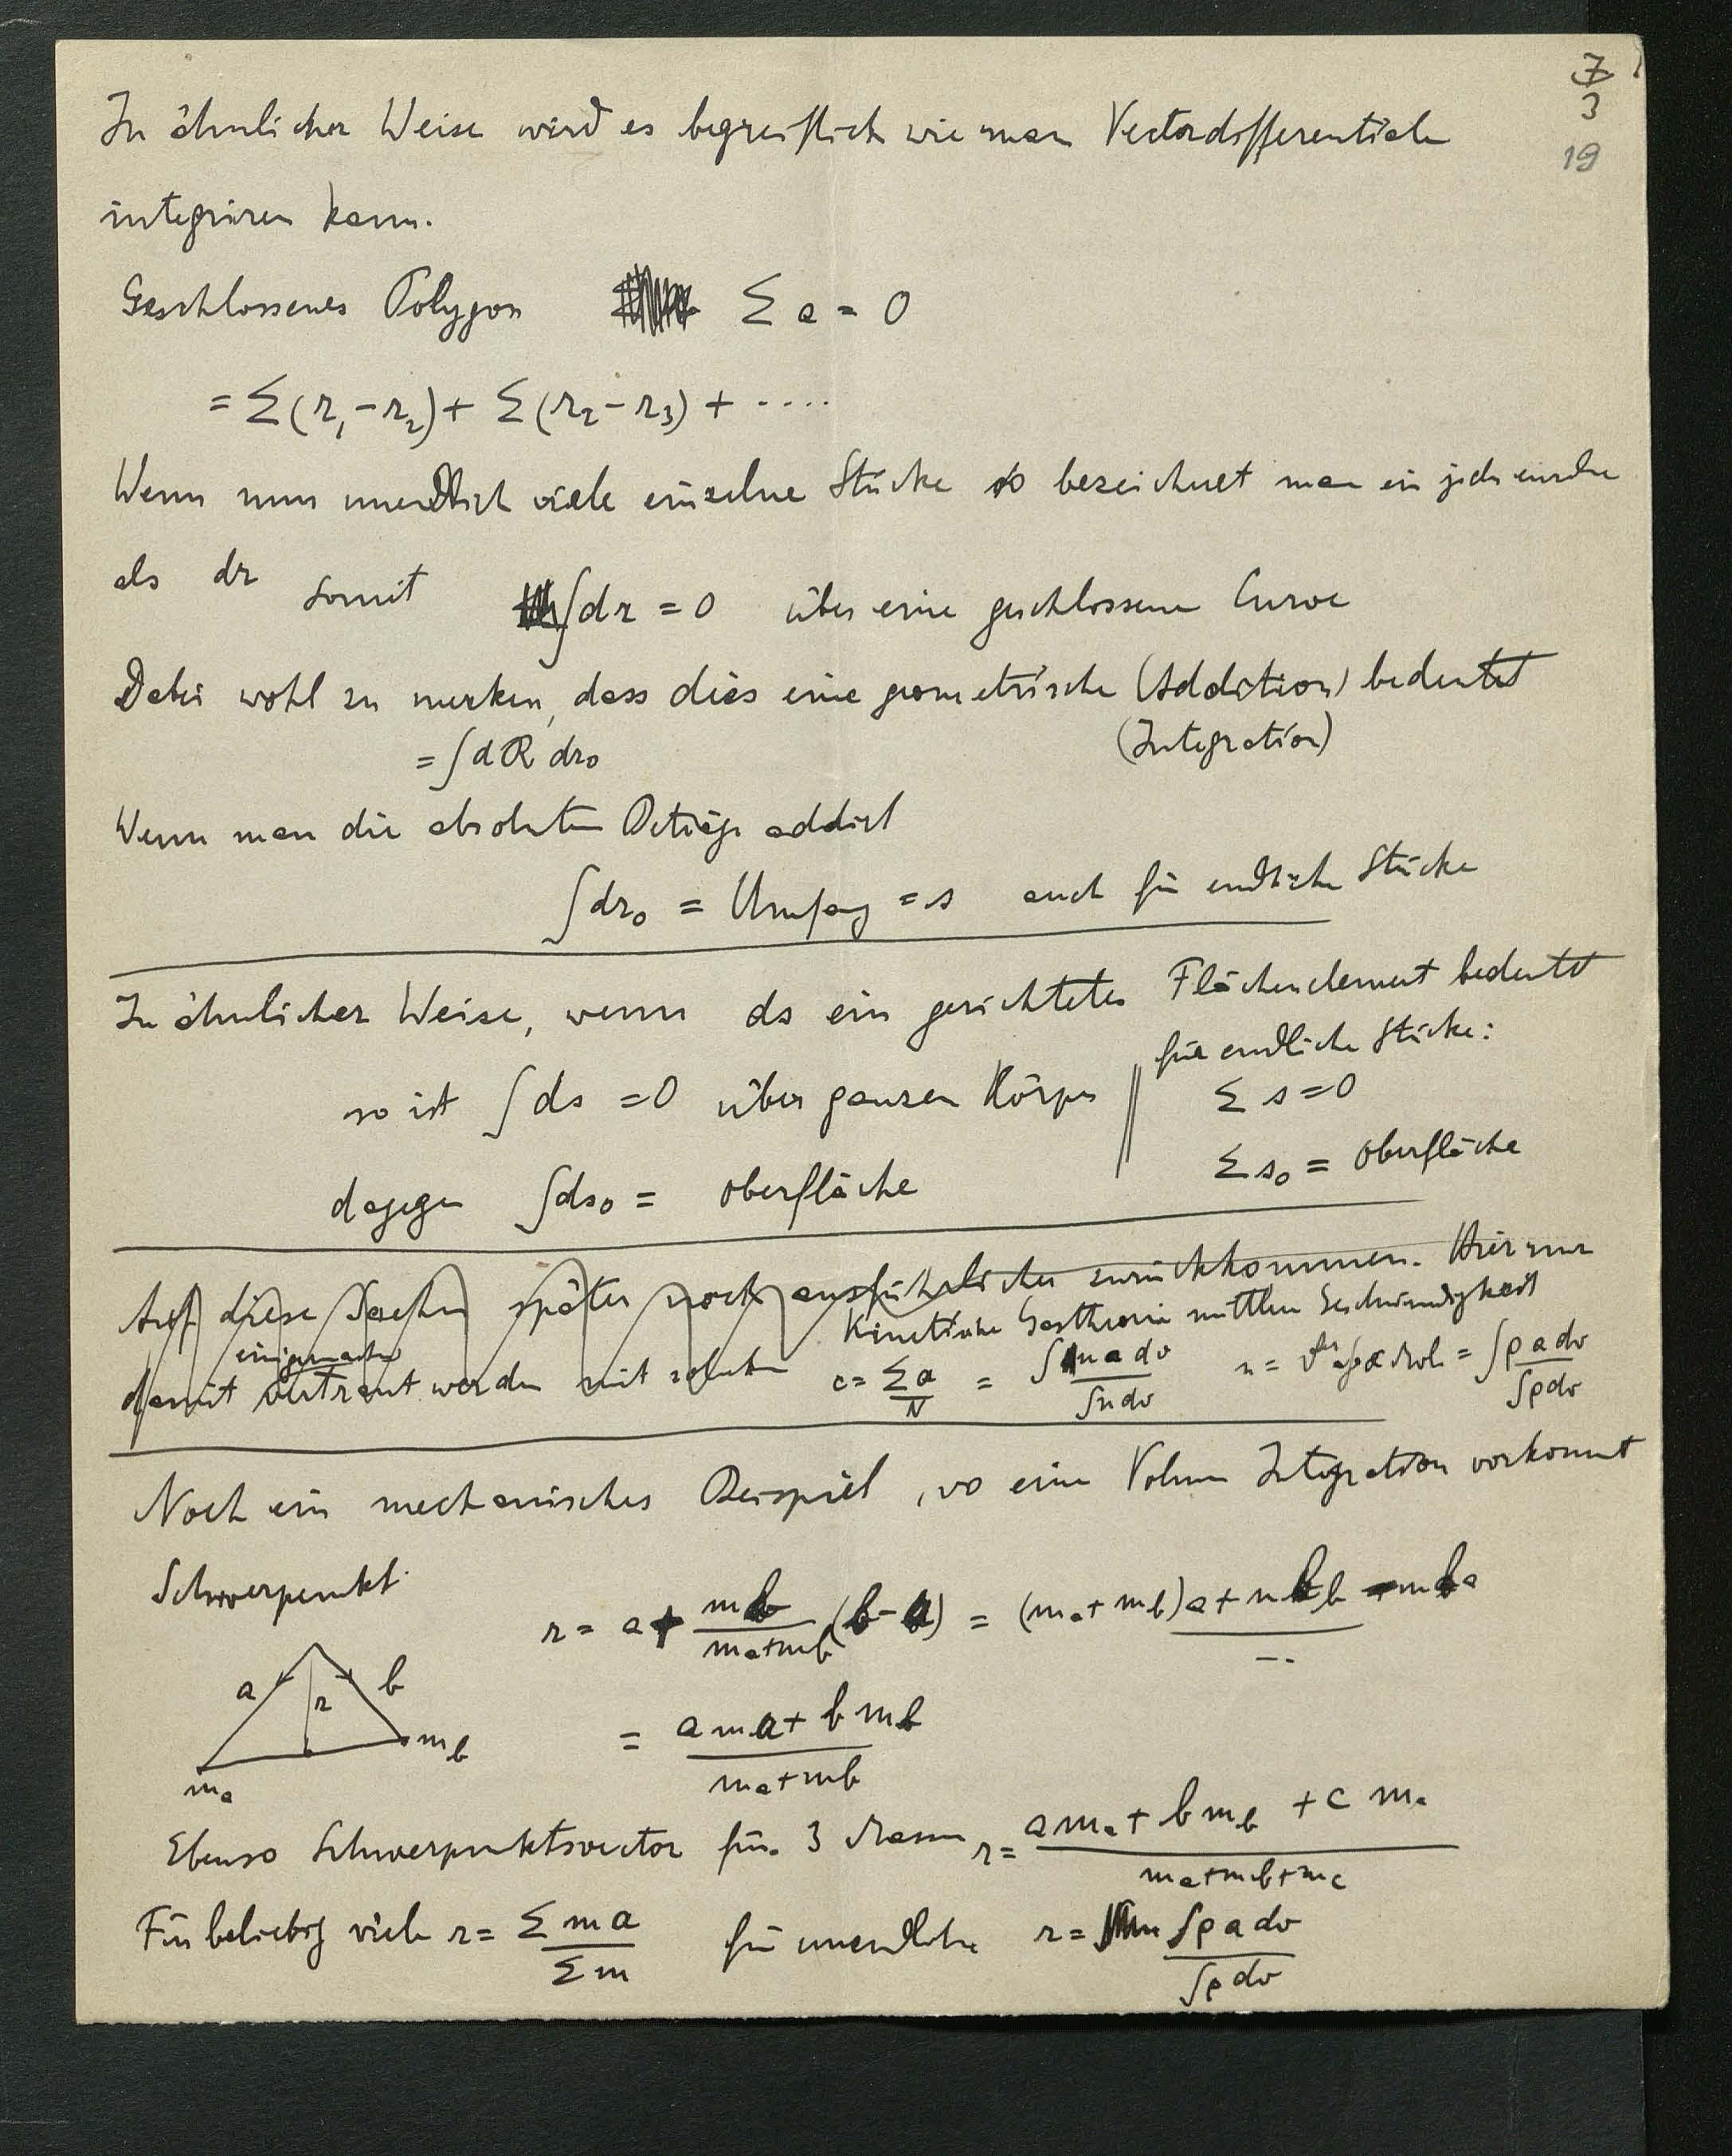 7
3
19
In ähnlicher Weise wird es begreiflich wie man Vectordifferentiale
integriren kann.
Geschlossenes Polygon Σ a = 0
= Σ(r₁ - r₂) + Σ(r₂ - r₃) + ....
Wenn nun unendlich viele einzelne Stücke so bezeichnet man ein jedes
als dr somit ∫dr = 0 über eine geschlossene Curve
Dabei wohl zu merken, dass dies eine geometrische (Addition) bedeutet
(Integration)
= ∫dR dr₀
Wenn man die absoluten Beträge addirt
∫dr₀ = Umfang = s auch für endliche Stücke
In ähnlicher Weise, wenn ds ein gerichtetes Flächenelement bedeutet
so ist ∫ds = 0 über ganzen Körper
für endliche Stücke:
Σ s = 0
dagegen ∫ds₀ = Oberfläche
Σ s₀ = Oberfläche
Auf diese Sachen später noch ausführlicher zurückkommen. Hier nur
einigermassen
damit vertraut werden mit solchen
Kinetische Gastheorie mittlere Geschwindigkeit
c = Σa/N = ∫n a dv/∫n dv = ∫ρ a dv/∫ρ dv
Noch ein mechanisches Beispiel, wo eine Volum Integration vorkommt
Schwerpunkt
r = a + mb/(ma+mb) (b - a) = (ma + mb)a + mb b - mb a
a r b
ma mb
= (a ma + b mb)/(ma + mb)
Ebenso Schwerpunktsvector für 3 Massen r = (a ma + b mb + c mc)/(ma+mb+mc)
Für beliebig viele r = Σ m a/Σ m für unendliche r = ∫ρ a dv/∫ρ dv